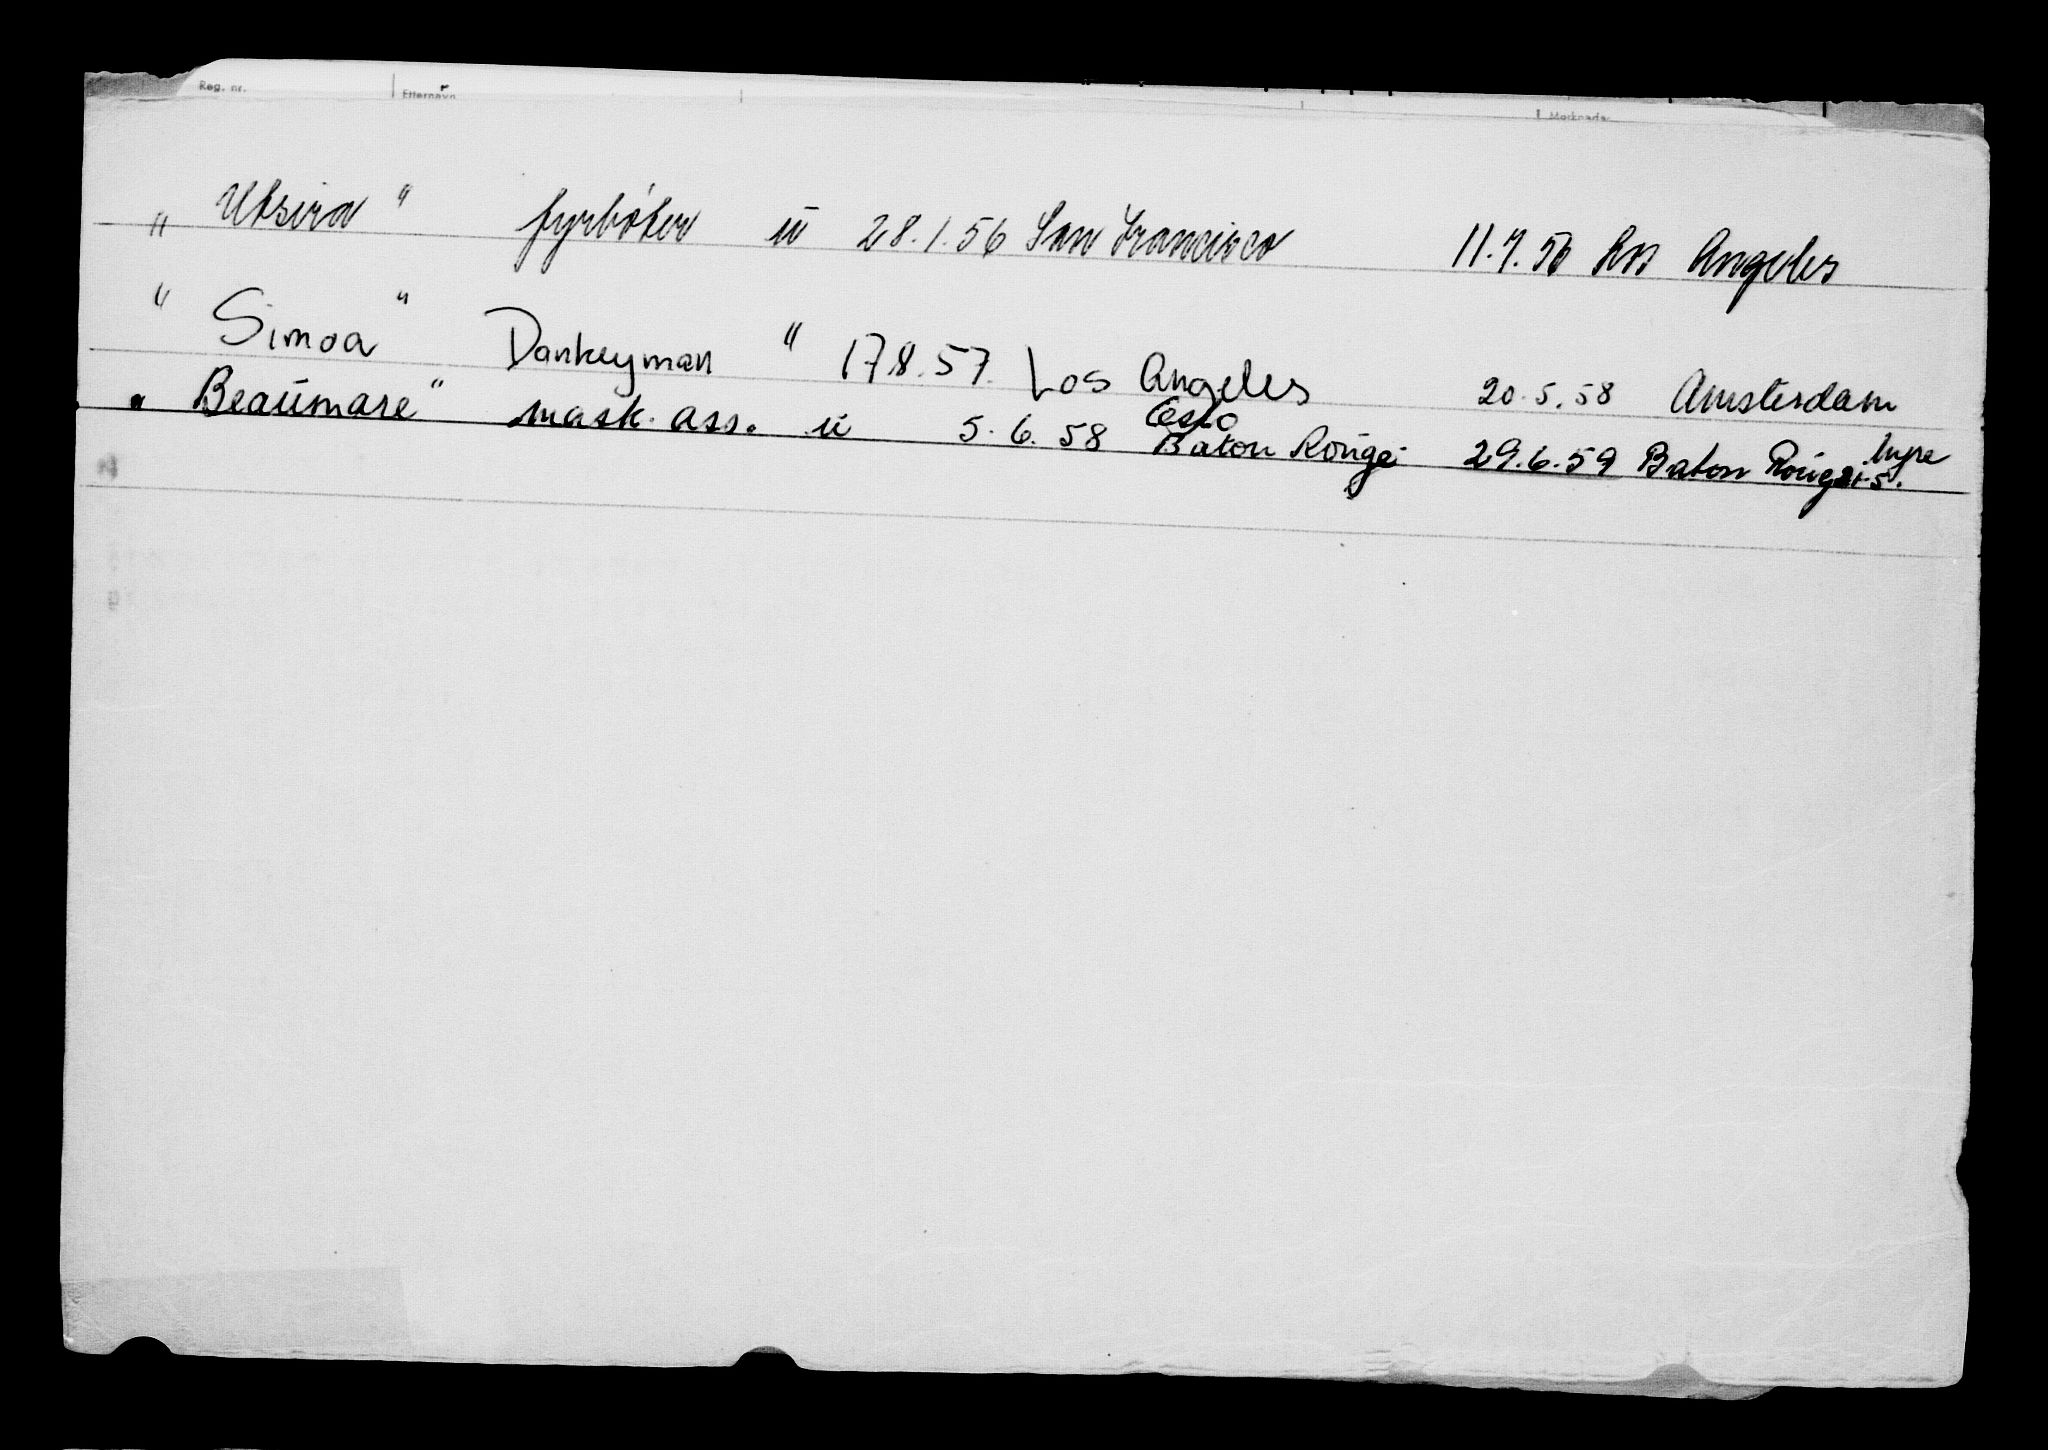 Reg. nr. Etternavn Merknader
„ Utsira " fyrbøter u 28.1.56 San Francisco 11.7.56 Los Angeles
" Simoa " Dankeyman " 17.8.57. Los Angeles 20.5.58 Amsterdam
" Beaumare" mask. ass. u 5.6.58 Oslo Baton Rouge 29.6.59 Baton Rouge